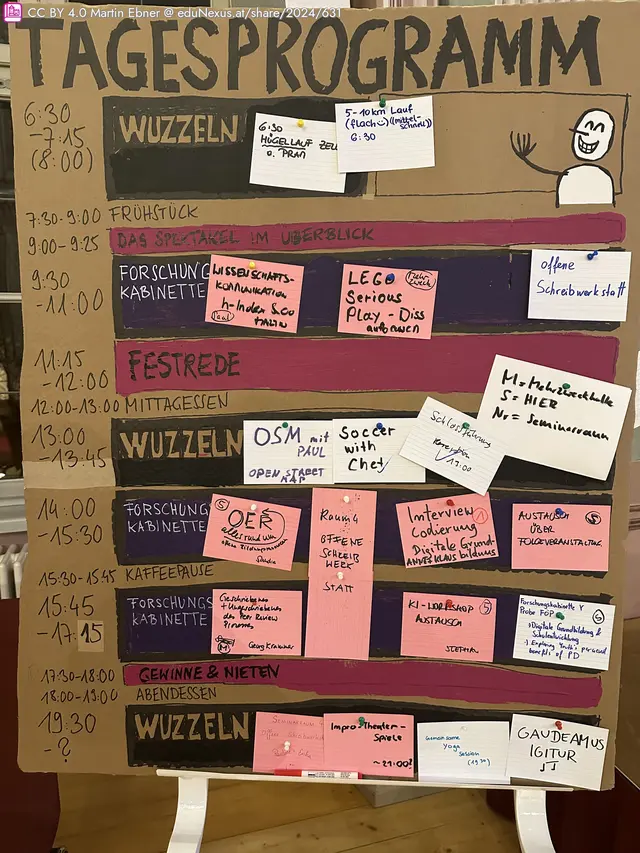 CC BY 4.0 Martin Ebner @ eduNexus.at/share/2024/631
TAGESPROGRAMM
6:30
-7:15
(8:00)
WUZZELN
6:30
HÜGELLAUF ZELL
5-10km Lauf
(flach
6:30
7:30-9:00 FRÜHSTÜCK
9:00-9:25 DAS SPEKTAKEL IM ÜBERBLICK
9:30
-11:00
FORSCHUNGS
KABINETTE
WISSENSCHAFTS-
KOMMUNIKATION
h-Index 500
LEGO
Serious
Play - Diss
aufbauen
offene
Schreibwerkstatt
11:15
-12:00
FESTREDE
M = Mehrzweckhalle
S = HIER
Nr = Seminarraum
12:00-13:00 MITTAGESSEN
13:00
-13:45
WUZZELN
OSM mit
PAUL
OPEN STREET
MAP
Soccer
with
Chet
Schlossführung
13:00
14:00
-15:30
FORSCHUNGS
KABINETTE
S
OER
alles rund um
Raum 4
OFFENE
SCHREIB
WERK
STATT
Interview 1
Codierung
Digitale Grund-
bildung
AUSTAUSCH S
ÜBER
FOLGEVERANSTALTUNG
15:30-15:45 KAFFEEPAUSE
15:45
-17:15
FORSCHUNGS
KABINETTE
Geschriebenes
+ Ungeschriebenes
des Peer Review
M
Georg Krammer
KI-WORKSHOP S
AUSTAUSCH
STEPHAN
Forschungskabinette 4
6
Digitale Grundbildung &
Schulentwicklung
Exploring Youth's perceived
benefits of PD
17:30-18:00 GEWINNE & NIETEN
18:00-19:00 ABENDESSEN
19:30
- ?
WUZZELN
Impro-Theater-
Spiele
~21:00?
Gemeinsame
Yoga
Session
(19:30)
GAUDEAMUS
IGITUR